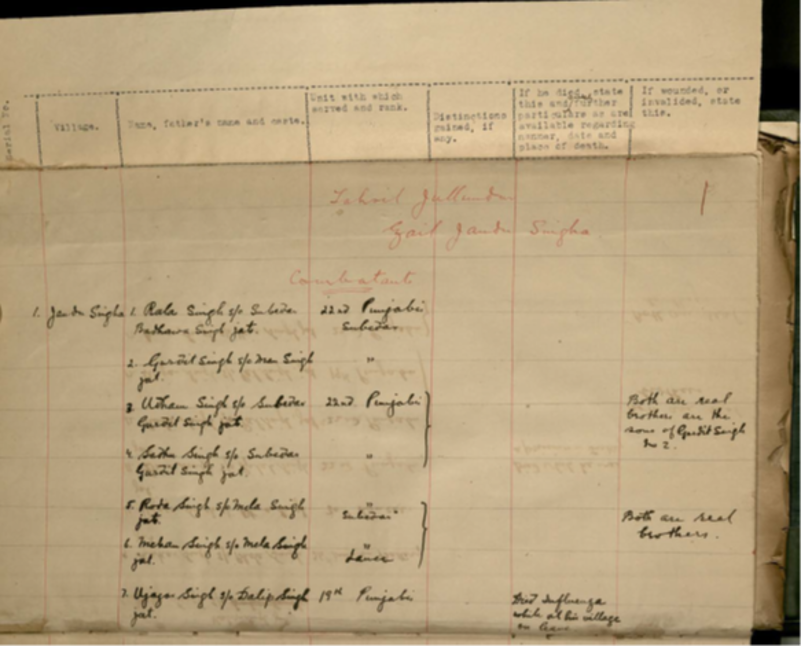 Serial No.
Village.
Name, father's name and caste.
Unit with which
served and rank.
Distinctions
gained, if
any.
If he died, state
this and further
particulars as are
available regarding
manner, date and
place of death.
If wounded, or
invalided, state
this.
Tahsil Jullundur
1
Zail Jandu Singha
Combatants
1. Jandu Singha 1. Rala Singh s/o Subedar 22nd Punjabis
Badhawa Singh jat. Subedar
2. Gurdit Singh s/o Man Singh "
jat.
3. Udham Singh s/o Subedar 22nd Punjabis
Gurdit Singh jat.
Both are real
brothers are the
sons of Gurdit Singh
No 2.
4. Sadhu Singh s/o Subedar "
Gurdit Singh jat.
5. Roda Singh s/o Mela Singh "
jat. Subedar
Both are real
brothers.
6. Mehan Singh s/o Mela Singh "
jat. Lance
7. Ujagar Singh s/o Dalip Singh 19th Punjabis
jat.
Died Influenza
while at his village
on leave